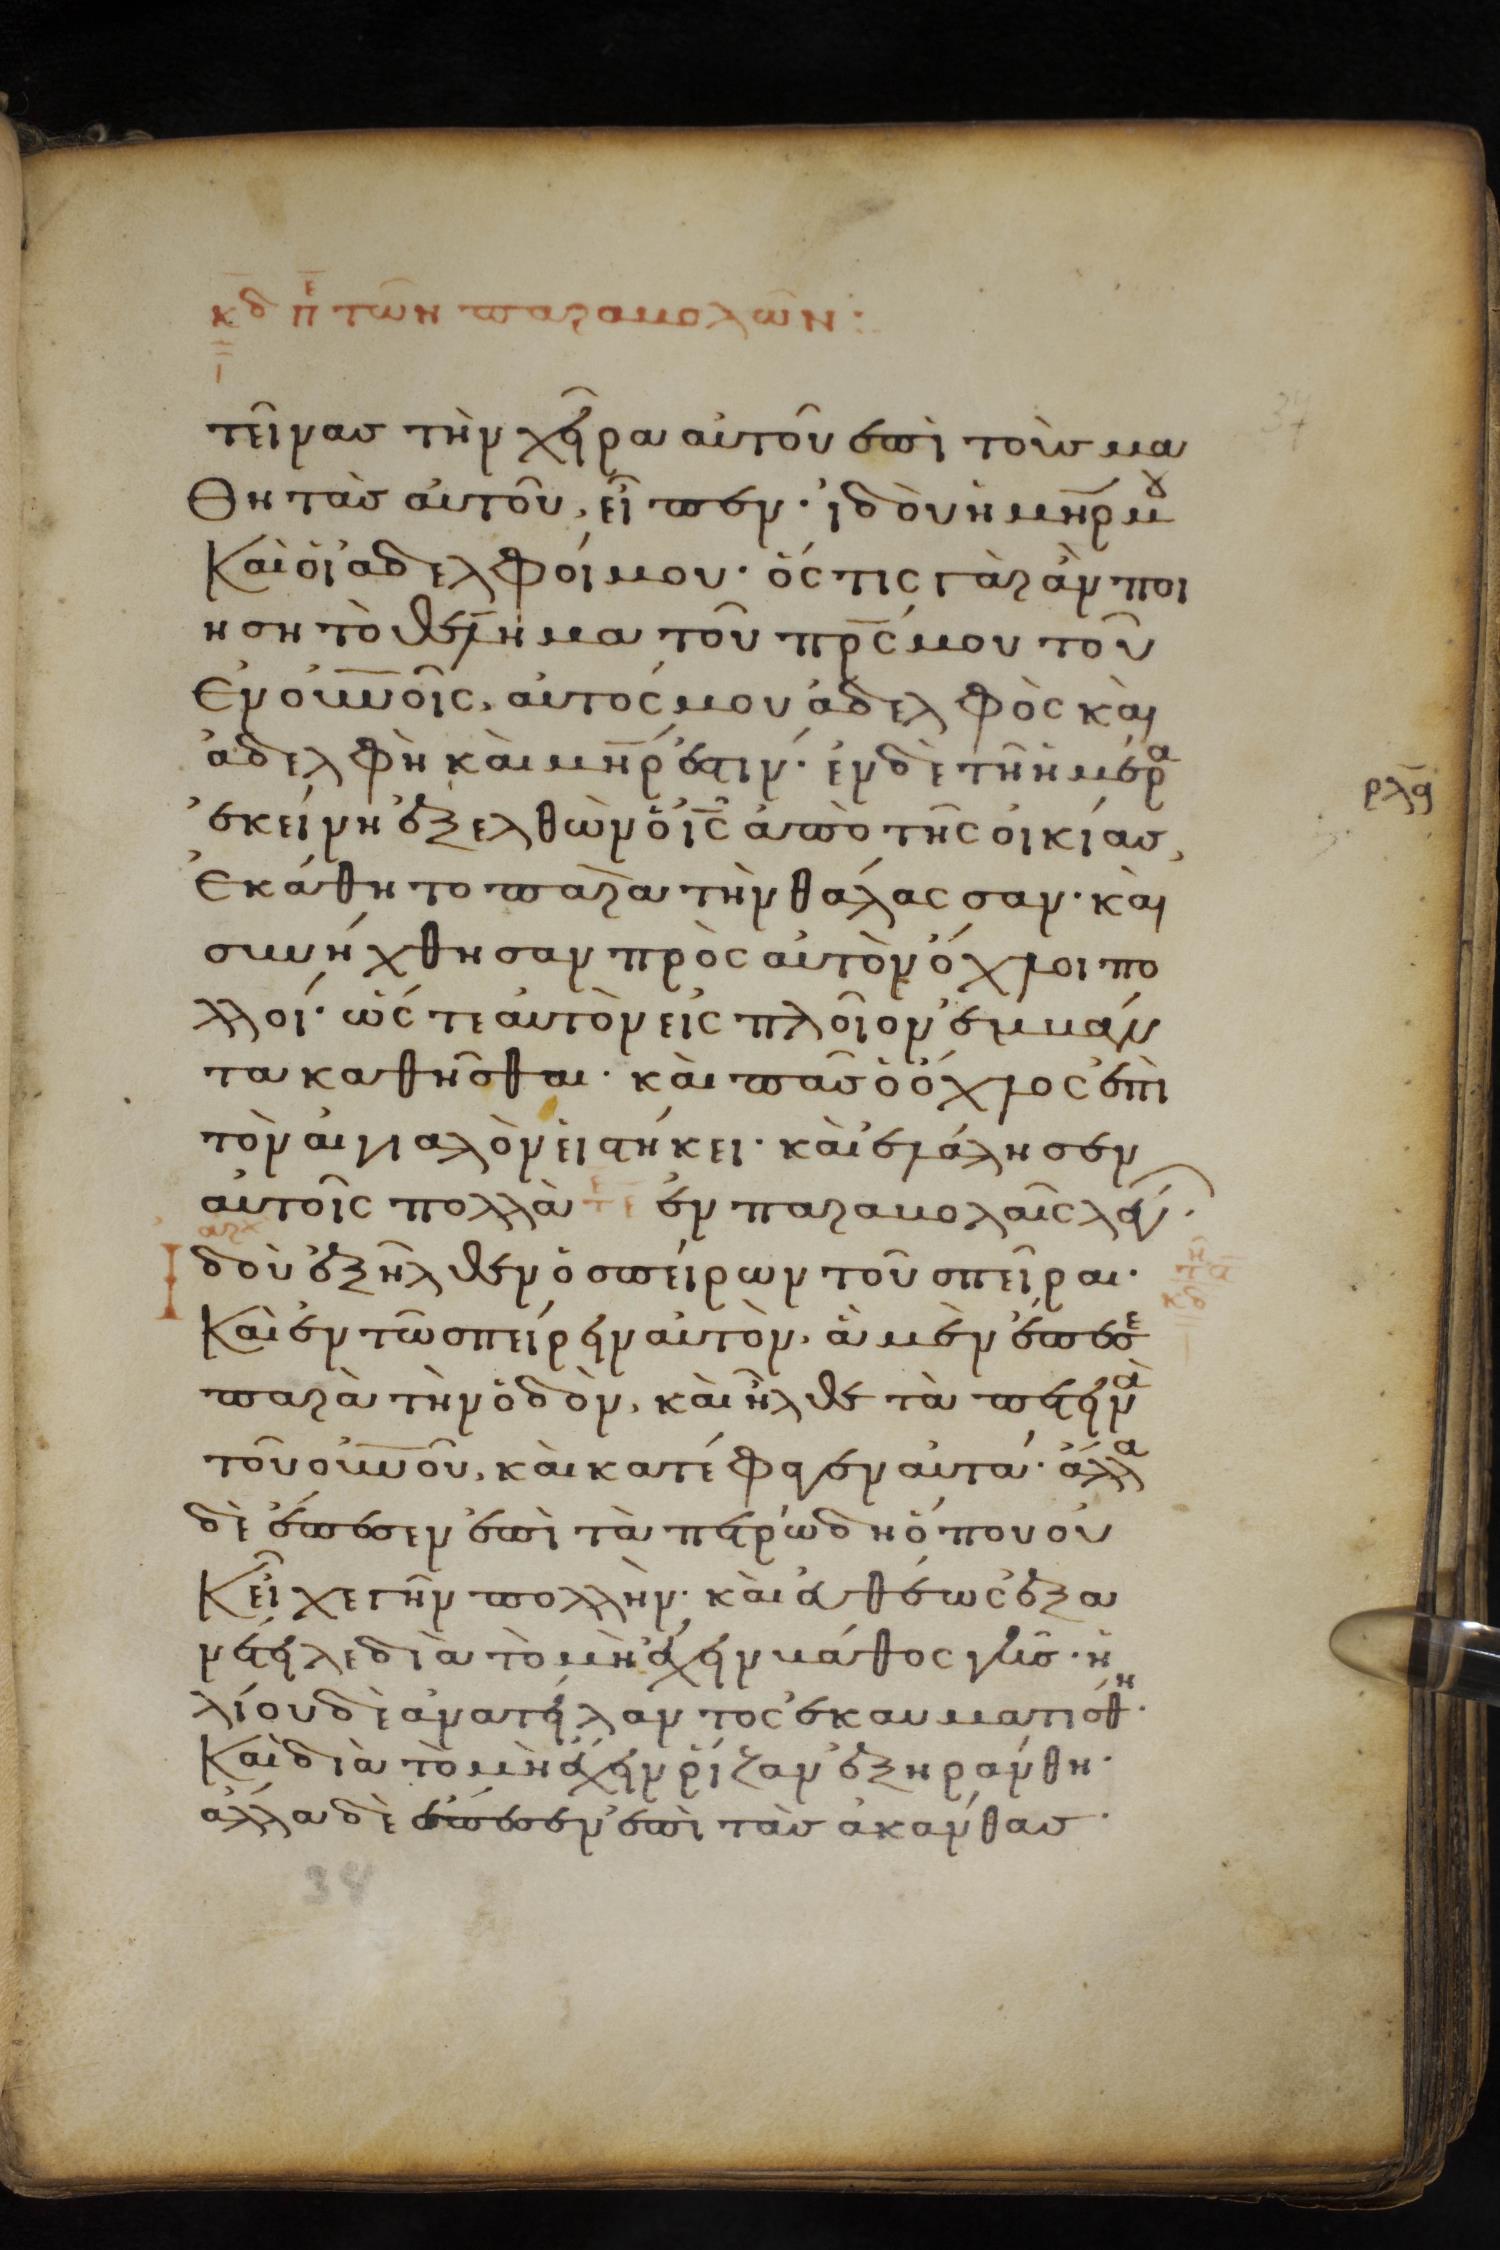 κδ πε τῶν παραβολῶν:
τεῖνας τὴν χεῖρα αὐτοῦ ἐπὶ τοὺς μα
θητὰς αὐτοῦ, εἶπεν· ἰδοὺ ἡ μηρ μου
Καὶ οἱ ἀδελφοί μου· ὅς τις γὰρ ἂν ποι
ηση τὸ θέλημα τοῦ πρς μου τοῦ
ἐν οὐνοῖς, αὐτός μου ἀδελφὸς καὶ
ἀδελφὴ καὶ μηρ ἐστιν· ἐν δὲ τῆ ἡμέρα
ἐκείνη ἐξελθὼν ὁ ις ἀπὸ τῆς οἰκίας,
ἐκάθητο παρὰ τὴν θάλασσαν· καὶ
συνήχθησαν πρὸς αὐτὸν ὄχλοι πο
λλοί· ὥς τε αὐτὸν εἰς πλοῖον ἐμβάν
τα καθῆσθαι· καὶ πᾶς ὁ ὄχλος ἐπὶ
τὸν αἰγιαλὸν εἱστήκει· καὶ ἐλάλησεν
αὐτοῖς πολλὰ τε ἐν παραβολαῖς λέγων·
αρχ
Ἰδοὺ ἐξῆλθεν ὁ σπείρων τοῦ σπεῖραι·
Καὶ ἐν τῶ σπείρειν αὐτὸν, ἃ μὲν ἔπεσε
παρὰ τὴν ὁδὸν, καὶ ἦλθε τὰ πετεινὰ
τοῦ οὐνοῦ, καὶ κατέφαγεν αὐτά· ἄλλα
δὲ ἔπεσεν ἐπὶ τὰ πετρώδη ὅπου οὐ
Κ εἶχε γῆν πολλὴν· καὶ εὐθέως ἐξα
νέτειλε διὰ τὸ μὴ ἔχειν βάθος γῆς· ἡ
λίου δὲ ἀνατείλαντος ἐκαυματίσθη·
Καὶ διὰ τὸ μὴ ἔχειν ῥίζαν ἐξηράνθη·
ἄλλα δὲ ἔπεσεν ἐπὶ τὰς ἀκάνθας·
ρλς
34
34